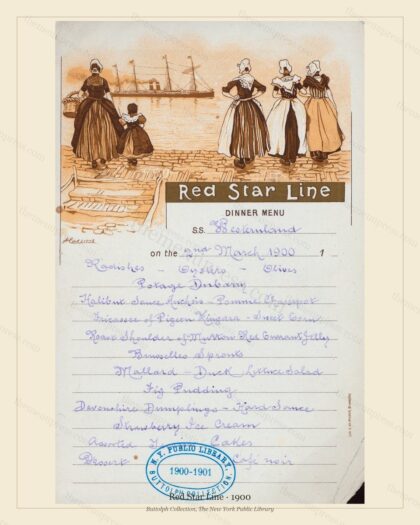 Red Star Line
DINNER MENU
S.S. Westernland
on the 2nd March 1900 1
Radishes - Oysters - Olives
Potage Dubarry
Halibut Sauce - Pomme
Fricassee of Pigeon Niagara - Sweet Corn
Roast Shoulder of Mutton Red Currant Jelly
Bruxelles Sprouts
Mallard - Duck Lettuce Salad
Fig Pudding
Devonshire Dumplings - Hard Sauce
Strawberry Ice Cream
Assorted Cakes
Dessert Café noir
N.Y. PUBLIC LIBRARY
1900-1901
BUTTOLPH COLLECTION
Red Star Line · 1900
Buttolph Collection, The New York Public Library
themenupress.com